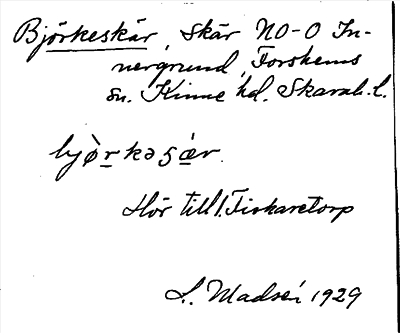 Björkeskär, skär NO-O In-
nergrund, Forshems
sn. Kinne hd. Skarab. l.
bjò̱rkəʂæ̱r.
Hör till l. Fiskaretorp
L. Madsén 1929